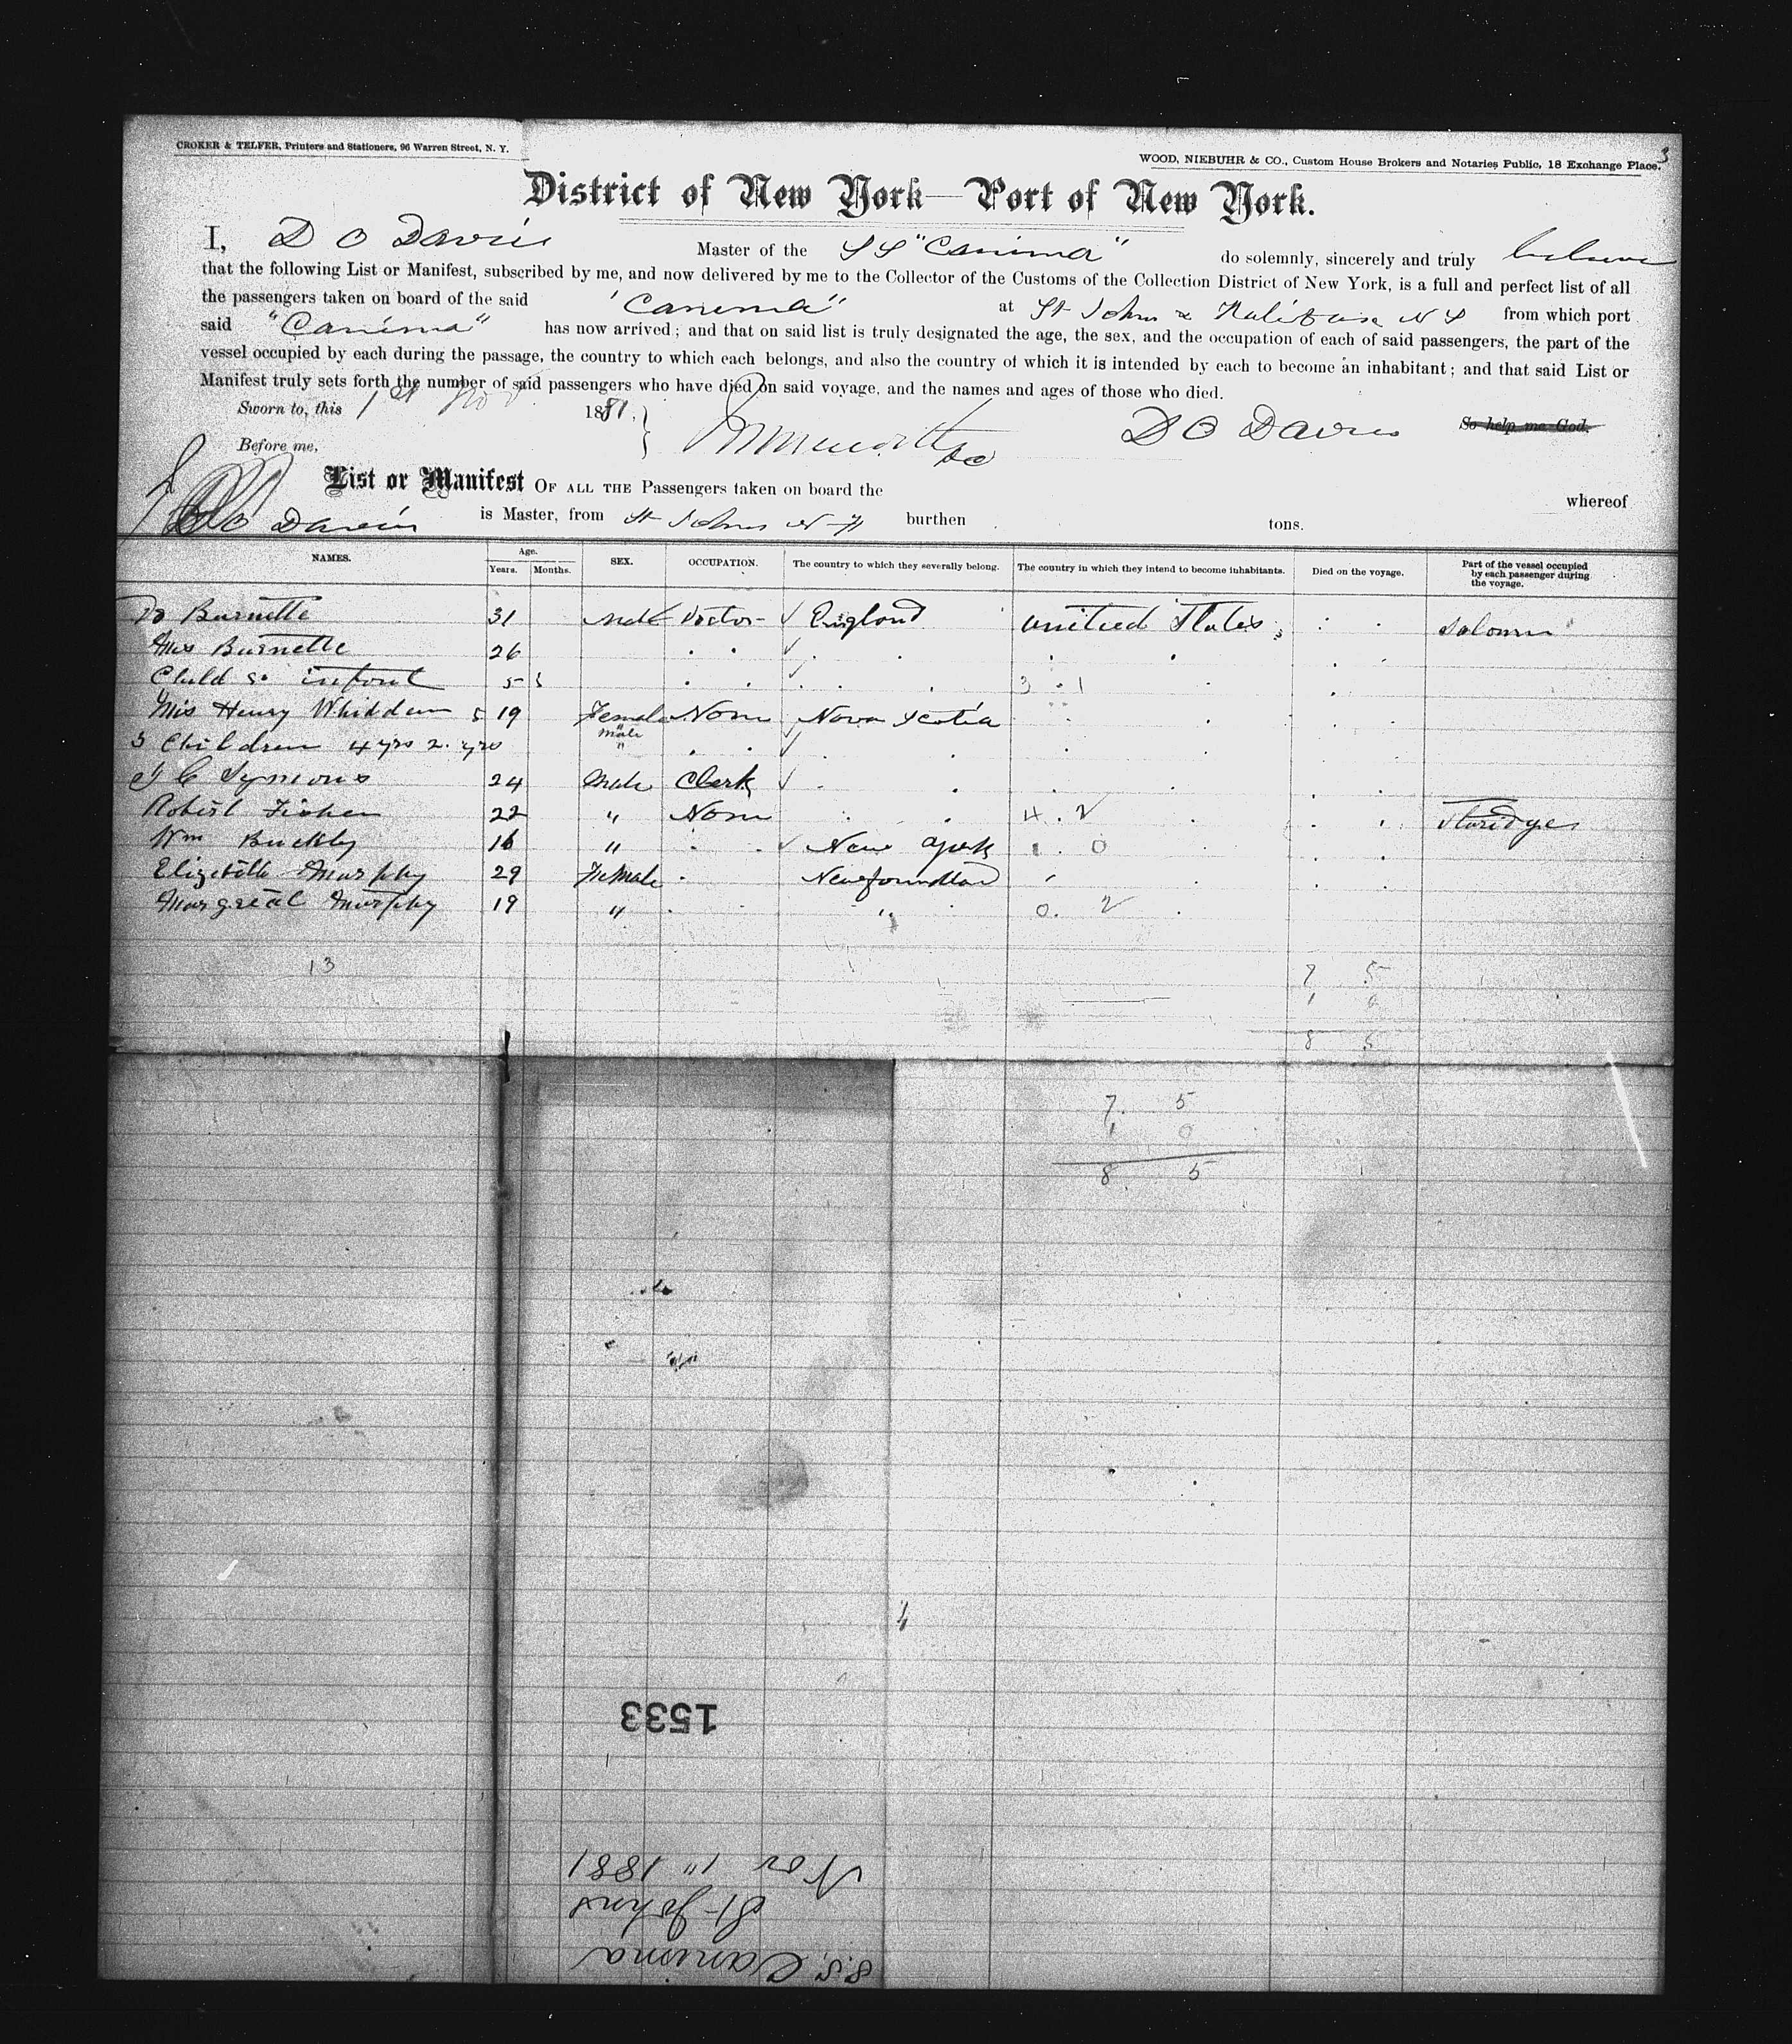 CROKER & TELFER, Printers and Stationers, 96 Warren Street, N. Y.
WOOD, NIEBUHR & CO., Custom House Brokers and Notaries Public, 18 Exchange Place.
3
District of New York—Port of New York.
I, D O Davis Master of the SS "Canima" do solemnly, sincerely and truly
that the following List or Manifest, subscribed by me, and now delivered by me to the Collector of the Customs of the Collection District of New York, is a full and perfect list of all
the passengers taken on board of the said "Canima" at St Johns & Halifax N S from which port
said "Canima" has now arrived; and that on said list is truly designated the age, the sex, and the occupation of each of said passengers, the part of the
vessel occupied by each during the passage, the country to which each belongs, and also the country of which it is intended by each to become an inhabitant; and that said List or
Manifest truly sets forth the number of said passengers who have died on said voyage, and the names and ages of those who died.
Sworn to, this 1st Nov 1881. D O Davis So help me God.
Before me,
List or Manifest OF ALL THE Passengers taken on board the whereof
D O Davis is Master, from St Johns N F burthen tons.
NAMES. Age. Years. Months. SEX. OCCUPATION. The country to which they severally belong. The country in which they intend to become inhabitants. Died on the voyage. Part of the vessel occupied by each passenger during the voyage.
Dr Burnette 31 Male Doctor England United States Saloon
Mrs Burnette 26
Child & infant 5 3 1
Mrs Henry Whidden 19 Female None Nova Scotia
3 Children 4 yrs 2 yrs Male "
J C Symons 24 Male Clerk
Robert Fisher 22 " None 4 2 Steridge
Wm Buckley 16 " New York 1 0
Elizebeth Murphy 29 Female Newfoundland
Margreat Murphy 19 " " 0 2
13
7 5
1 0
8 5
7 5
1 0
8 5
4
1533
Nov 1" 1881
St Johns
S.S. Canima